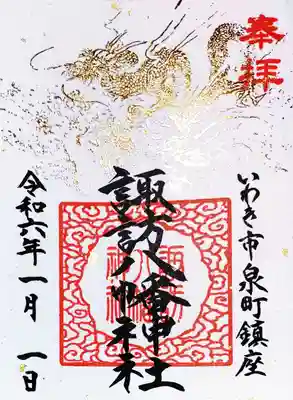 奉拝
いわき市泉町鎮座
諏訪八幡神社
令和六年一月一日